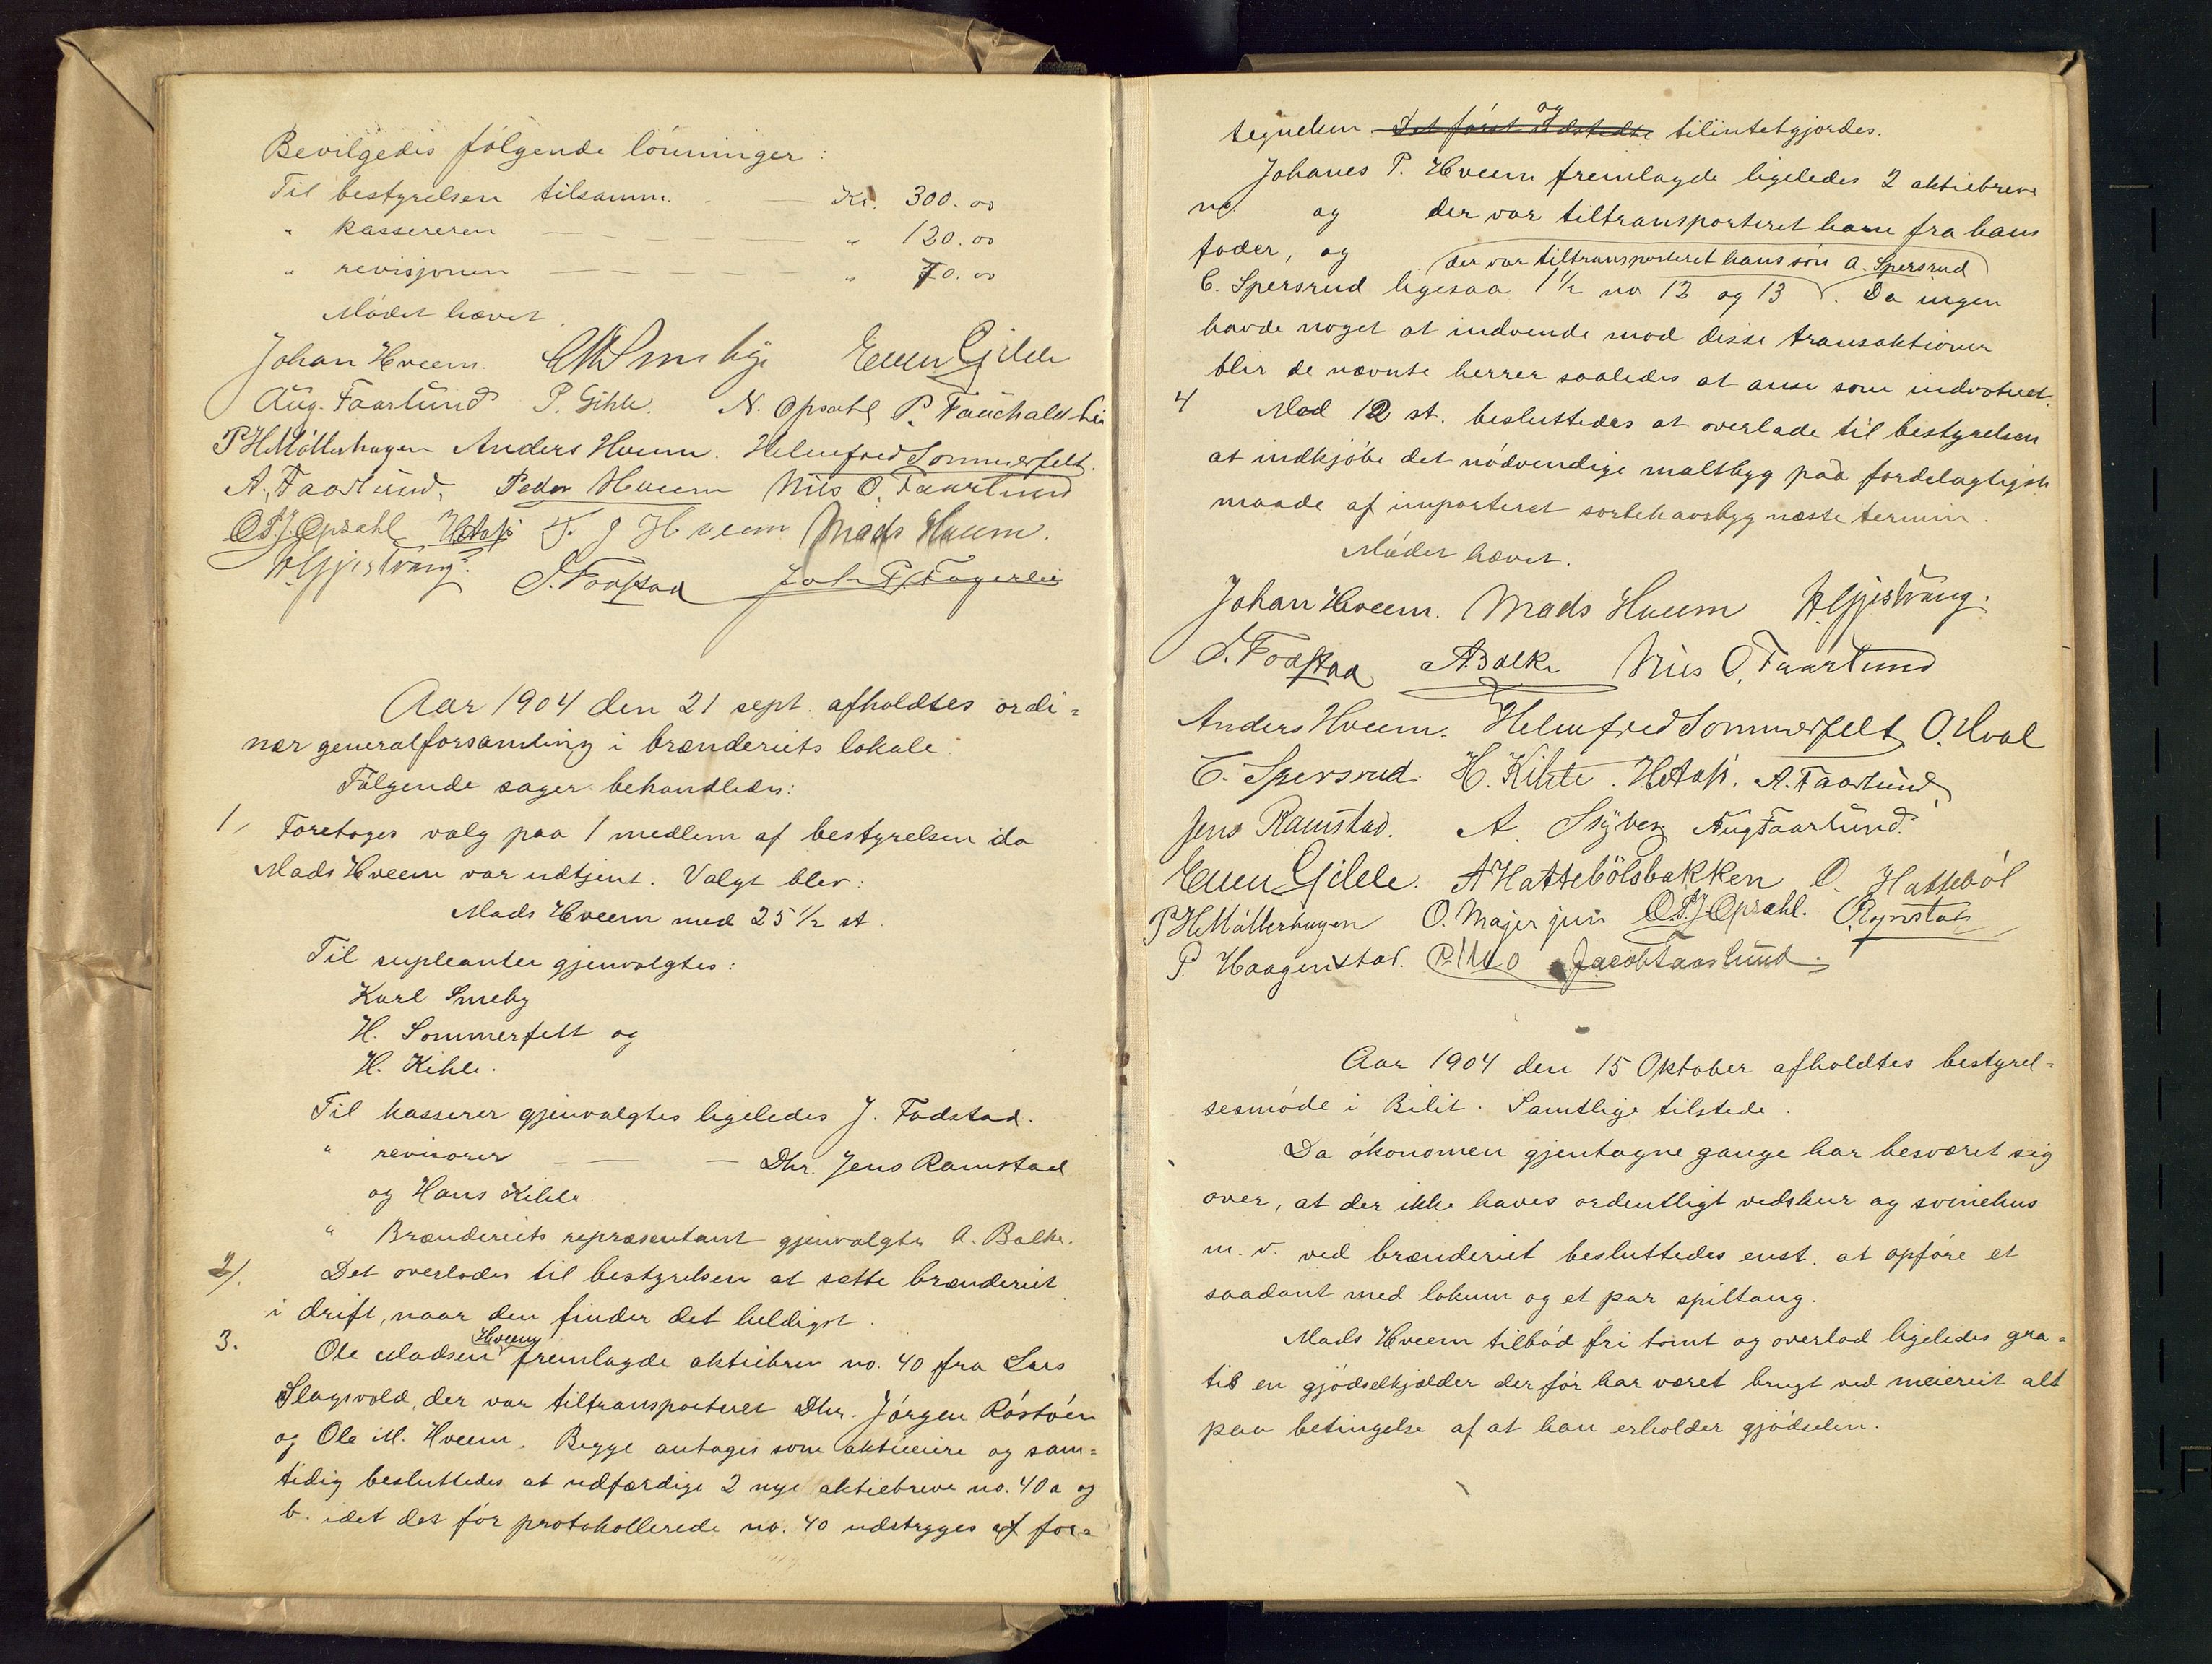 Bevilgedes følgende lönninger:
Til bestyrelsen tilsamm. — Kr. 300.00
" kassereren — — — — " 120.00
" revisjonen — — — " 70.00
Mödet hævet.
Johan Hveem. Even Gihle
Aug. Faarlund P. Gihle. N. Opsahl P. Fauchald
P H Möllerhagen Anders Hveem. Helmfred Sommerfelt.
A. Faarlund. Peder Hveem Nils O. Faarlund
O. P. J. Opsahl J Hveem Mads Hveem.
H Gjestvang. J. Fodstad Joh P. Fagerlie
Aar 1904 den 21 sept. afholdtes ordi=
nær generalforsamling i brænderiets lokale.
Fölgende sager behandledes:
1, Foretoges valg paa 1 medlem af bestyrelsen da
Mads Hveem var udtjent. Valgt blev:
Mads Hveem med 25 1/2 st.
Til supleanter gjenvalgtes:
Karl Smeby
H. Sommerfelt og
H. Kihle.
Til kasserer gjenvalgtes ligeledes J. Fodstad.
" revisorer — — — Dhr. Jens Ramstad
og Hans Kihle.
" Brænderiets repræsentant gjenvalgtes A. Balke.
2/. Det overlodes til bestyrelsen at sætte brænderiet
i drift, naar den finder det heldigst.
3. Ole Madsen Hveem fremlagde aktiebrev no. 40 fra Lars
Slagsvold, der var tiltransporteret Dhr. Jörgen Röstöen
og Ole M. Hveem. Begge antages som aktieeiere og sam=
tidig besluttedes at udfærdige 2 nye aktiebreve no. 40 a og
b. idet det för protokollerede no. 40 udstryges af for=
tegnelsen Det först udstedte og tilintetgjordes.
Johanes P. Hveem fremlagde ligeledes 2 aktiebreve
no. og der var tiltransporteret ham fra hans
fader, og
der var tiltransporteret hans sön A. Spersrud
C. Spersrud ligesaa 1 1/2 no 12 og 13. Da ingen
havde noget at indvende mod disse transaktioner
blir de nævnte herrer saaledes at anse som indvotert.
4 Med 12 st. besluttedes at overlade til bestyrelsen
at indkjöbe det nödvendige maltbyg paa fordelagtigste
maade af importeret sortehavsbyg næste termin.
Mödet hævet.
Johan Hveem. Mads Hveem H Gjestvang.
J. Fodstad A Balke Nils O. Faarlund
Anders Hveem. Helmfred Sommerfelt O. Hval
C. Spersrud. H. Kihle. A. Faarlund
Jens Ramstad. A Skyberg Aug Faarlund.
Even Gihle. A Hattebölsbakken O. Hatteböl
P H Möllerhagen O. Majer jun O. P. J. Opsahl.
P. Haagenstad. Jacob Faarlund.
Aar 1904 den 15 Oktober afholdtes bestyrel=
sesmöde i Bilit. Samtlige tilstede.
Da ökonomen gjentagne gange har besværet sig
over, at der ikke haves ordentligt vedskur og svinehus
m. v. ved brænderiet besluttedes enst. at opföre et
saadant med lokum og et par spiltaug.
Mads Hveem tilböd fri tomt og overlod ligeledes gra=
tis en gjödselkjælder der för har været brugt ved meieriet alt
paa betingelse af at han erholder gjödselen.